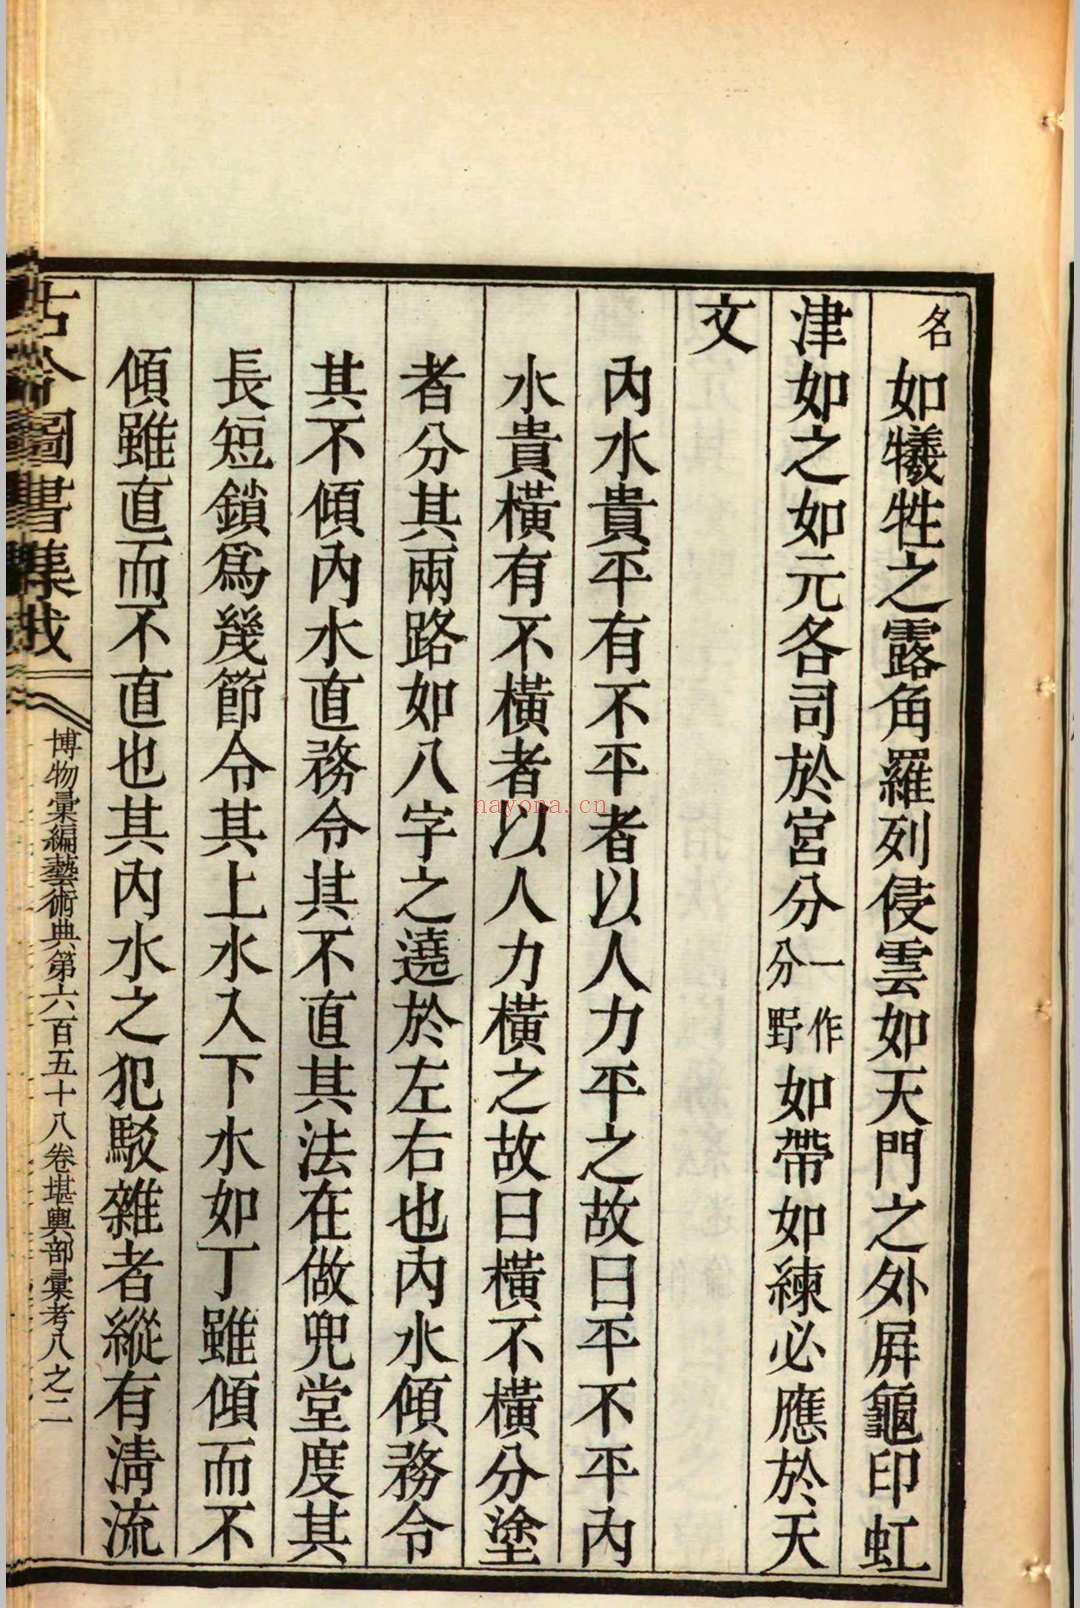 名 如犧牲之露角羅列侵雲如天門之外屏龜印虹
津如之如元各司於宮分一作分野如帶如練必應於天
文
內水貴平有不平者以人力平之故曰平不平內
水貴橫有不橫者以人力橫之故曰橫不橫分塗
者分其兩路如八字之遶於左右也內水傾務令
其不傾內水直務令其不直其法在做兜堂度其
長短鎖爲幾節令其上水入下水如丁雖傾而不
傾雖直而不直也其內水之犯駁雜者縱有淸流
古今圖書集成
博物彙編藝術典第六百五十八卷堪輿部彙考八之二
nayona.cn